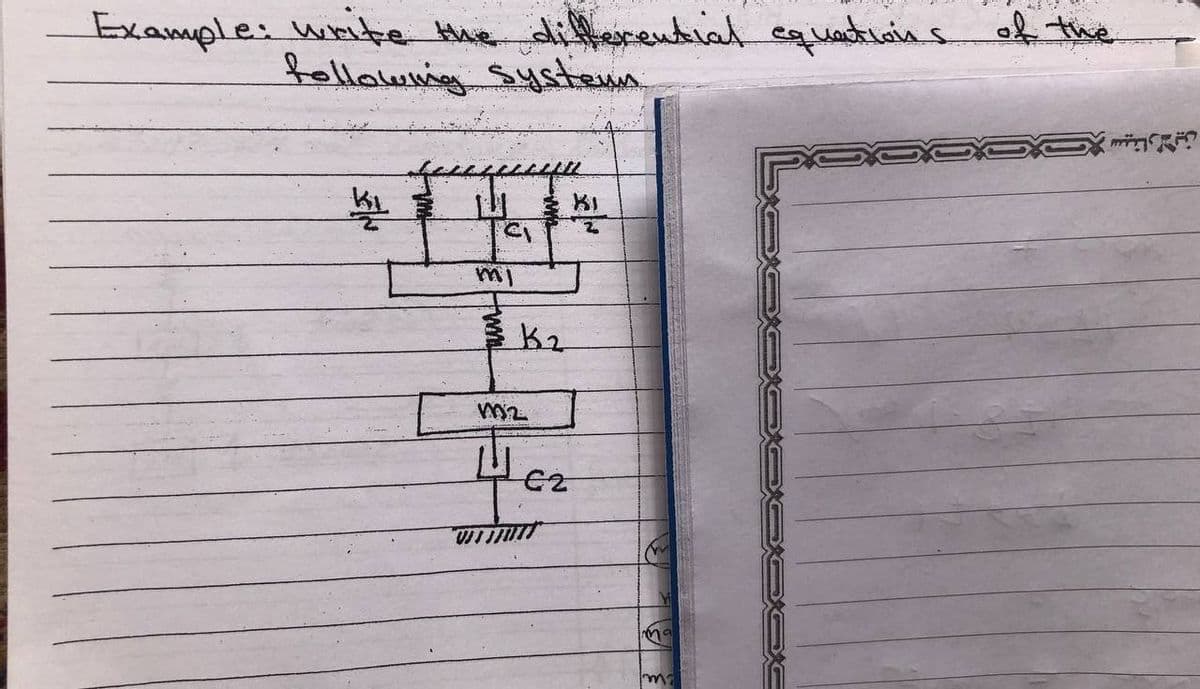 Example: write the differential equations of the
following system
K1/2
C1
K1/2
m1
K2
m2
C2
m
ma
m2